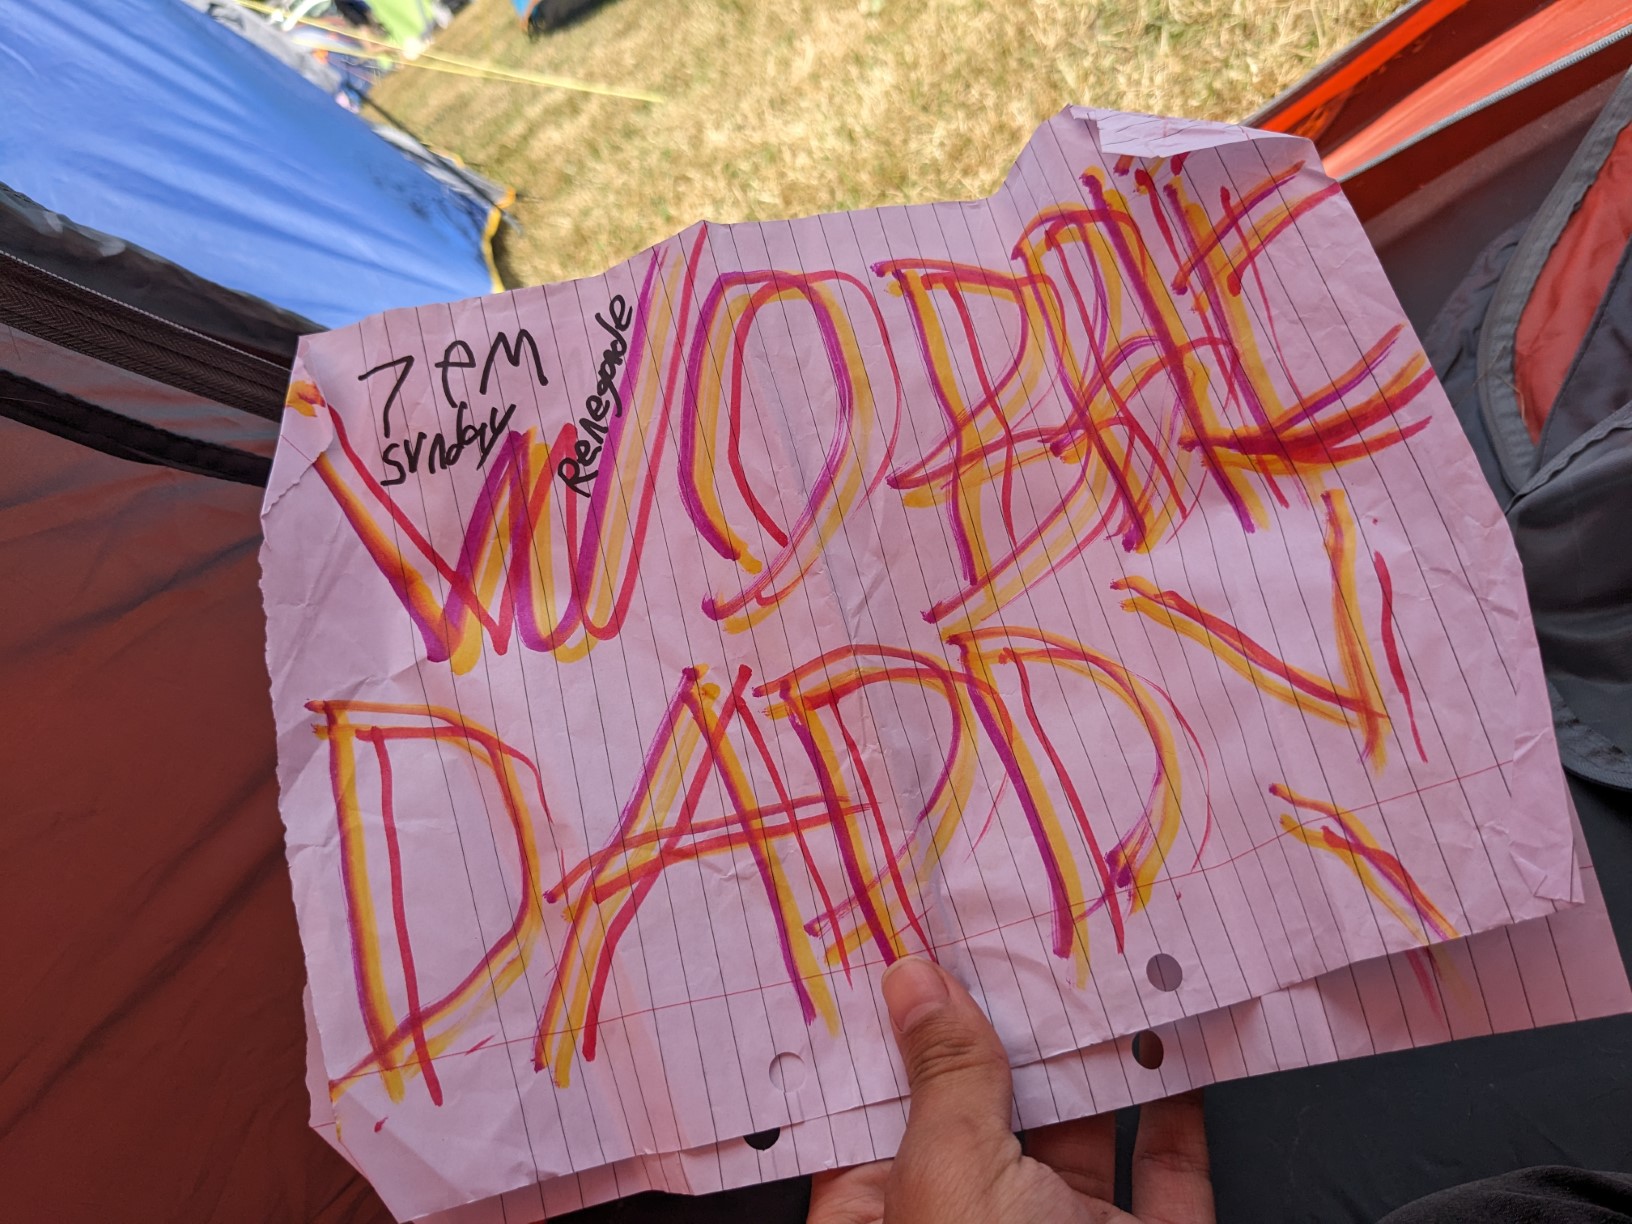 7 PM
Sunday
Renegade
WOBBLE
DADDY